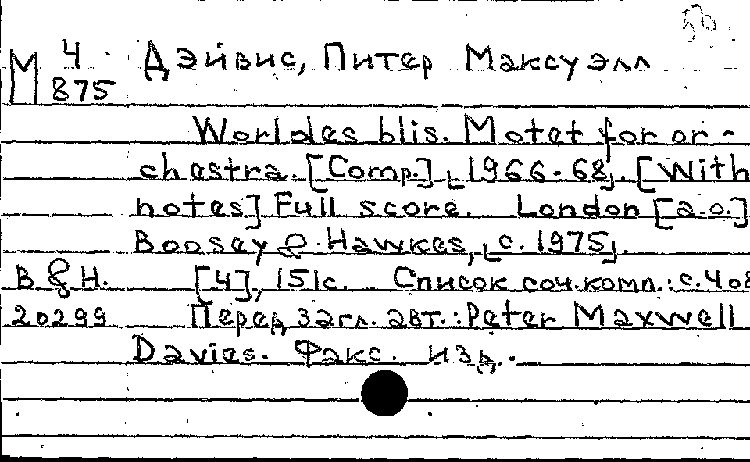 М 4 Дэйвис, Питер Максуэлл
875
Worldes blis. Motet for or-
chestra. [Comp.] [1966-68]. [With
notes] Full score. London [a.o.]
Boosey & Hawkes, [c. 1975].
B & H. [4], 151с. Список соч. комп.: с. 408
20299 Перед загл. авт.: Peter Maxwell
Davies. Факс. изд.